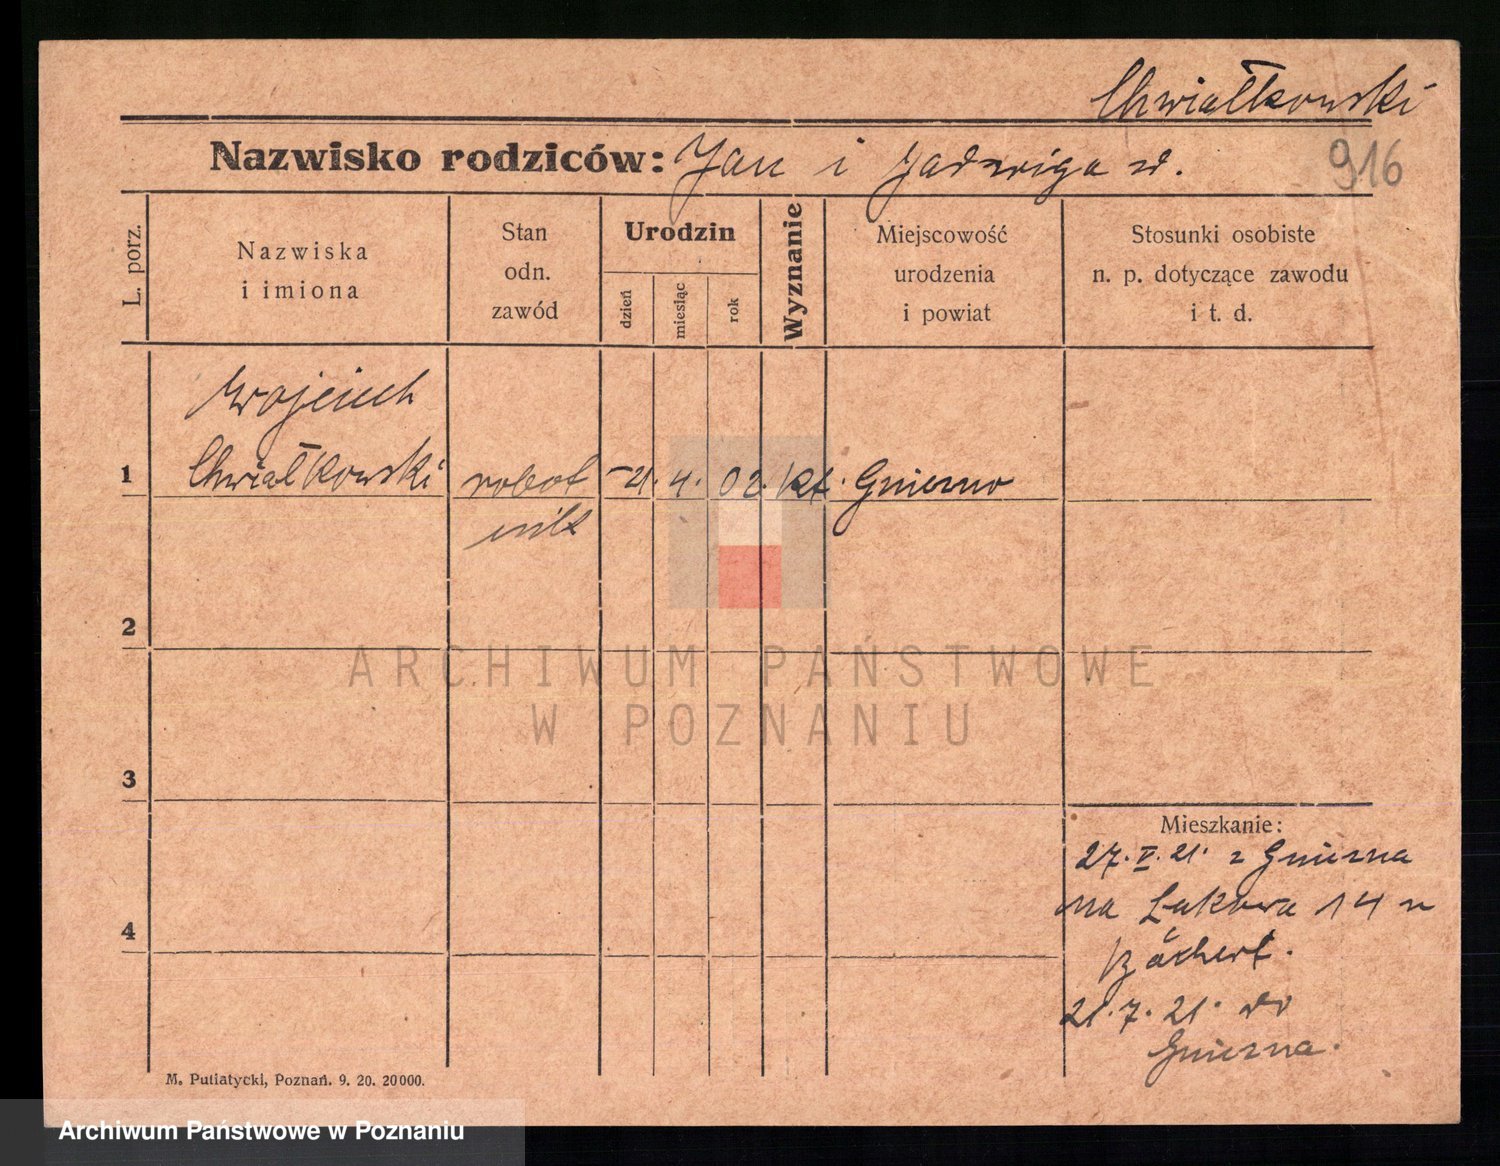 Chwiałkowski
Nazwisko rodziców: Jan i Jadwiga
916
L. porz.
Nazwiska
i imiona
Stan
odn.
zawód
Urodzin
dzień
miesiąc
rok
Wyznanie
Miejscowość
urodzenia
i powiat
Stosunki osobiste
n. p. dotyczące zawodu
i t. d.
Wojciech
1 Chwiałkowski robot 21. 4. 02. kt. Gniezno
nik
2
3
4
Mieszkanie:
27. V. 21. z Gniezna
na Łąkowa 14 u
Bächert.
21. 7. 21. do
Gniezna.
M. Putiatycki, Poznań. 9. 20. 20000.
ARCHIWUM PAŃSTWOWE
W POZNANIU
Archiwum Państwowe w Poznaniu